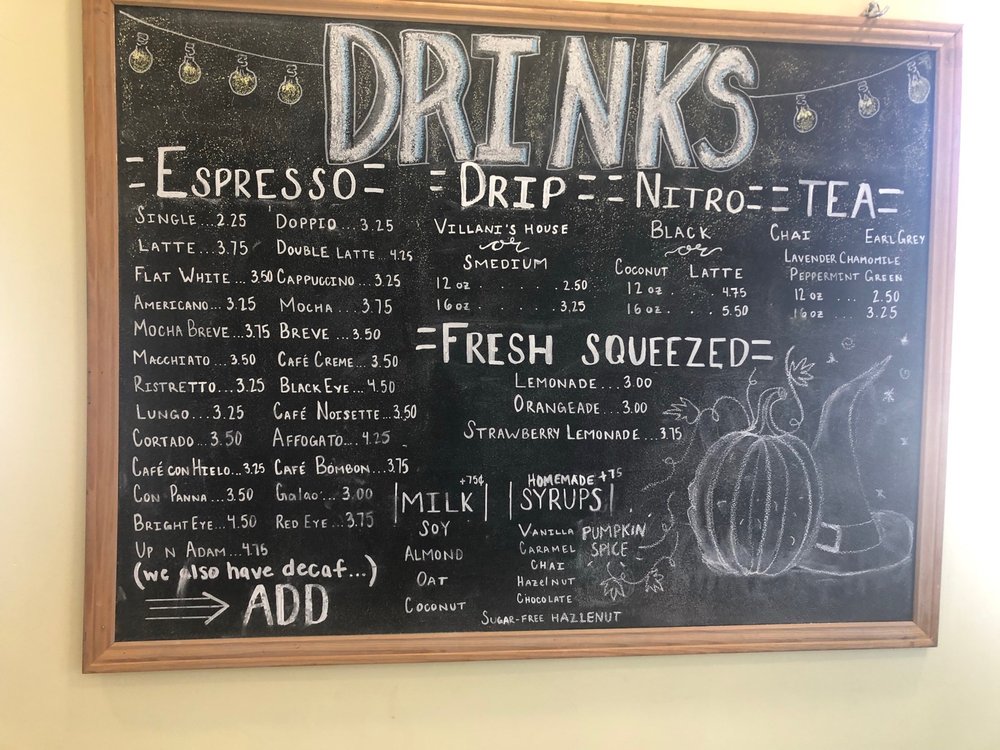 DRINKS
=ESPRESSO=
SINGLE...2.25 DOPPIO...3.25
LATTE...3.75 DOUBLE LATTE..4.25
FLAT WHITE...3.50 CAPPUCCINO...3.25
AMERICANO...3.25 MOCHA...3.75
MOCHA BREVE...3.75 BREVE...3.50
MACCHIATO...3.50 CAFÉ CREME...3.50
RISTRETTO...3.25 BLACK EYE...4.50
LUNGO...3.25 CAFÉ NOISETTE...3.50
CORTADO...3.50 AFFOGATO...4.25
CAFÉ CON HIELO...3.25 CAFÉ BOMBON...3.75
CON PANNA...3.50 GALAO...3.00
BRIGHT EYE...4.50 RED EYE...3.75
UP N ADAM...4.75
(we also have decaf...)
ADD
=DRIP=
VILLANI'S HOUSE
or
SMEDIUM
12 oz ....... 2.50
16 oz ....... 3.25
=NITRO=
BLACK
or
COCONUT LATTE
12 oz . . 4.75
16 oz . . 5.50
=TEA=
CHAI EARL GREY
LAVENDER CHAMOMILE
PEPPERMINT GREEN
12 oz .... 2.50
16 oz .... 3.25
=FRESH SQUEEZED=
LEMONADE...3.00
ORANGEADE...3.00
STRAWBERRY LEMONADE...3.75
+75¢
|MILK|
SOY
ALMOND
OAT
COCONUT
HOMEMADE +75
|SYRUPS|
VANILLA PUMPKIN
CARAMEL SPICE
CHAI
HAZELNUT
CHOCOLATE
SUGAR-FREE HAZLENUT